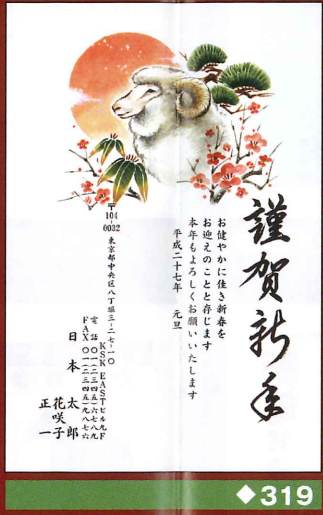 謹賀新年
お健やかに佳き新春を
お迎えのことと存じます
本年もよろしくお願いいたします
平成二十七年　元旦
〒104-0032
東京都中央区八丁堀三-二七-一〇
KSK EASTビル九F
電話〇一二三四五）六七八九
FAX〇一二三四五）九八七六
日本太郎
花咲子
正一
◆319